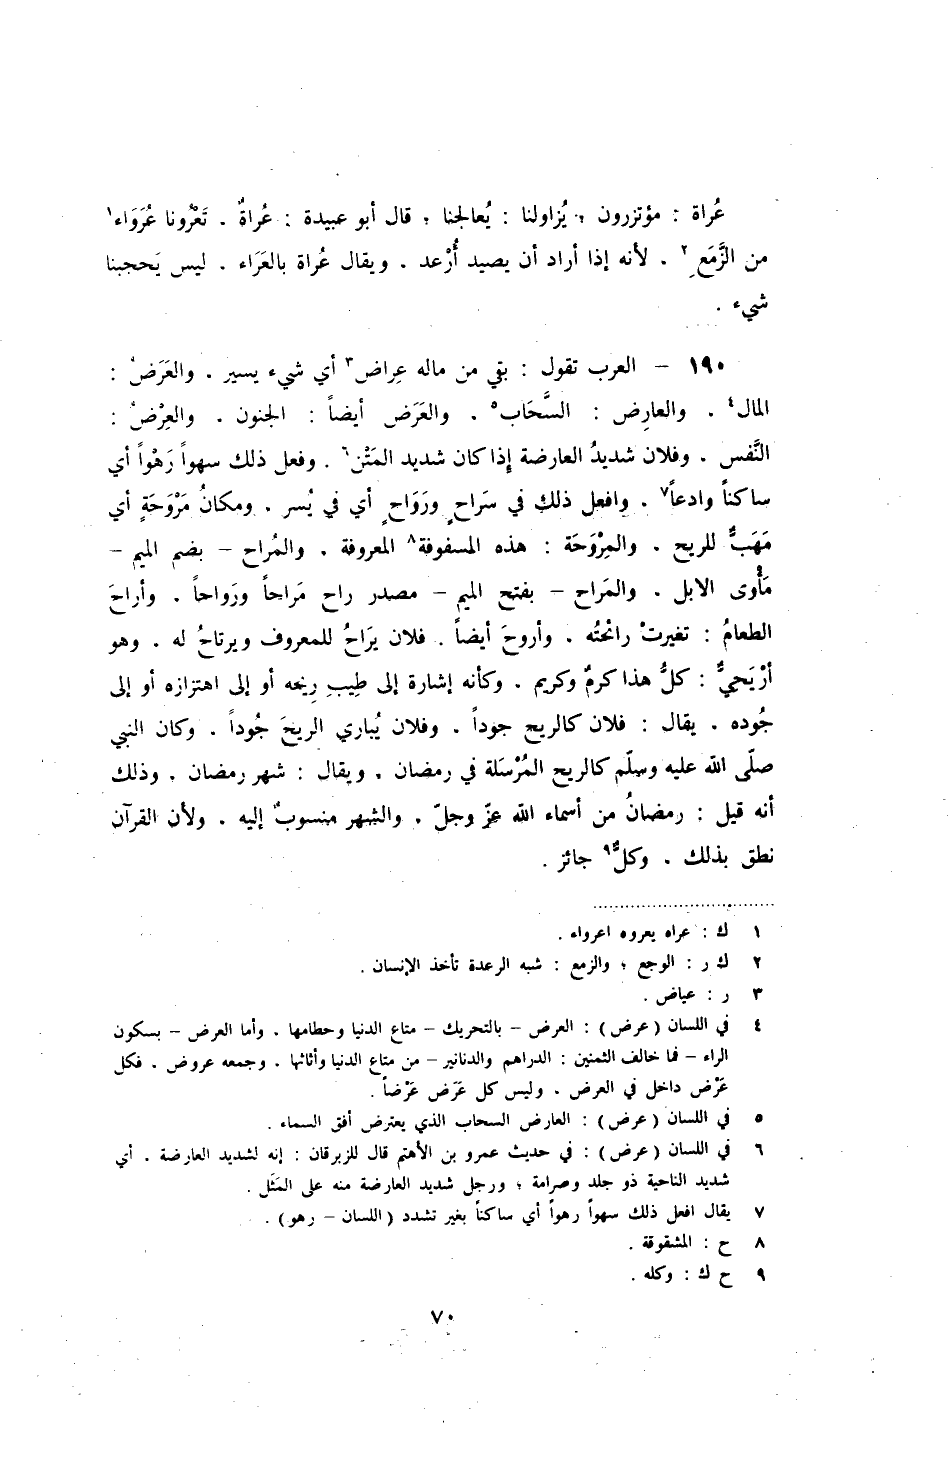 عُراة : مؤتزرون ؛ يُزاولنا : يُعالجنا ؛ قال أبو عبيدة : عُراةٌ . تَعْرُونا عُرَوَاء١
من الزَّمَعِ٢ . لأنه إذا أراد أن يصيد أُرْعد . ويقال عُراة بالعَرَاء . ليس يَحجبنا
شيء .
١٩٠ – العرب تقول : بقي من ماله عِراض٣ أي شيء يسير . والعَرَضْ :
المال٤ . والعارِض : السَّحَاب٥ . والعَرَض أيضاً : الجنون . والعِرْضُ :
النَّفس . وفلان شديدُ العارضة إذا كان شديد المَتْن٦ . وفعل ذلك سهواً رَهْواً أي
ساكناً وادعاً٧ . وافعل ذلك في سَراحٍ ورَوَاحٍ أي في يُسر . ومكانُ مَرْوَحَةٍ أي
مَهَبٌّ للريح . والمِرْوَحَة : هذه المسفوفة٨ المعروفة . والمُراح – بضم الميم –
مَأْوى الابل . والمَراح – بفتح الميم – مصدر راح مَراحاً ورَواحاً . وأراحَ
الطعامُ : تغيرتْ رائحتُه . وأروحَ أيضاً . فلان يَراحُ للمعروف ويرتاحُ له . وهو
أرْيَحيٌّ : كلُّ هذا كرمٌ وكريم . وكأنه إشارة إلى طِيبِ رِيحه أو إلى اهتزازه أو إلى
جُوده . يقال : فلان كالريح جوداً . وفلان يُباري الريحَ جُوداً . وكان النبي
صلّى الله عليه وسلّم كالريح المُرْسَلة في رمضان . ويقال : شهر رمضان . وذلك
أنه قيل : رمضانُ من أسماء الله عزّ وجلّ . والشهر منسوبٌ إليه . ولأن القرآن
نطق بذلك . وكلٌّ٩ جائز .
١ ك : عراه يعروه اعرواء .
٢ ك ر : الوجع ؛ والزمع : شبه الرعدة تأخذ الإنسان .
٣ ر : عياض .
٤ في اللسان ( عرض ) : العرض – بالتحريك – متاع الدنيا وحطامها . وأما العرض – بسكون
الراء – فما خالف الثمنين : الدراهم والدنانير – من متاع الدنيا وأثاثها . وجمعه عروض . فكل
عَرْض داخل في العرض . وليس كل عَرَض عَرْضاً .
٥ في اللسان ( عرض ) : العارض السحاب الذي يعترض أفق السماء .
٦ في اللسان ( عرض ) : في حديث عمرو بن الأهتم قال للزبرقان : إنه لشديد العارضة . أي
شديد الناحية ذو جلد وصرامة ؛ ورجل شديد العارضة منه على المَثَل .
٧ يقال افعل ذلك سهواً رهواً أي ساكناً بغير تشدد ( اللسان – رهو ) .
٨ ح : المشقوقة .
٩ ح ك : وكله .
٧٠